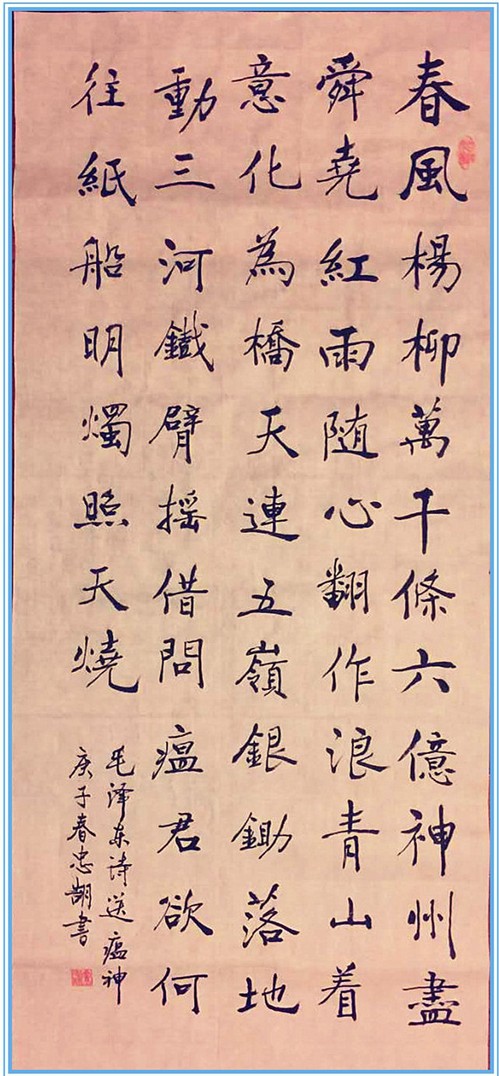 春風楊柳萬千條六億神州盡
舜堯紅雨随心翻作浪青山着
意化為橋天連五嶺銀鋤落地
動三河鐵臂摇借問瘟君欲何
往紙船明燭照天燒
毛泽东诗送瘟神
庚子春忠書